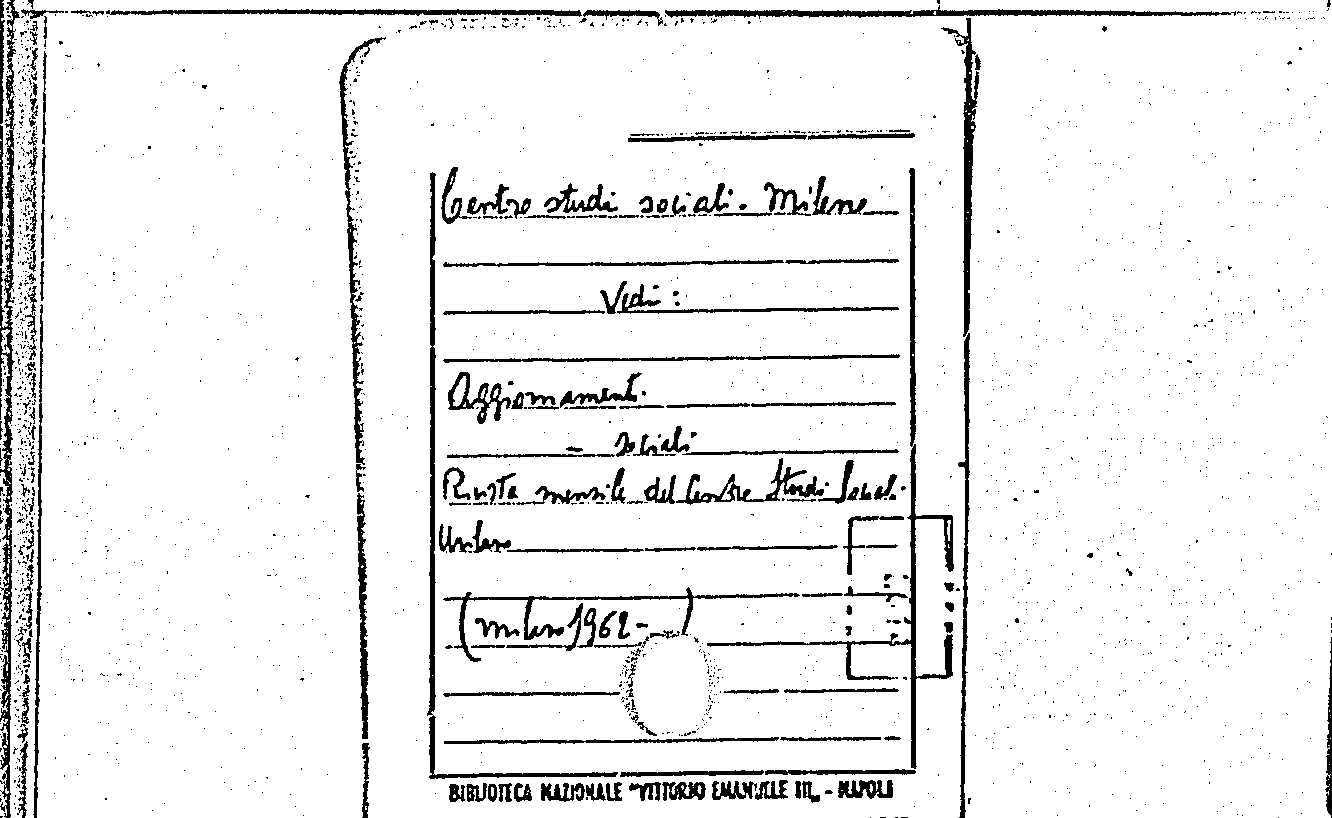 Centro studi sociali. Milano
Vedi:
Aggiornamenti
- sociali
Rivista mensile del Centro Studi Sociali.
Milano
(Milano 1962- )
BIBLIOTECA NAZIONALE "VITTORIO EMANUELE III„ - NAPOLI